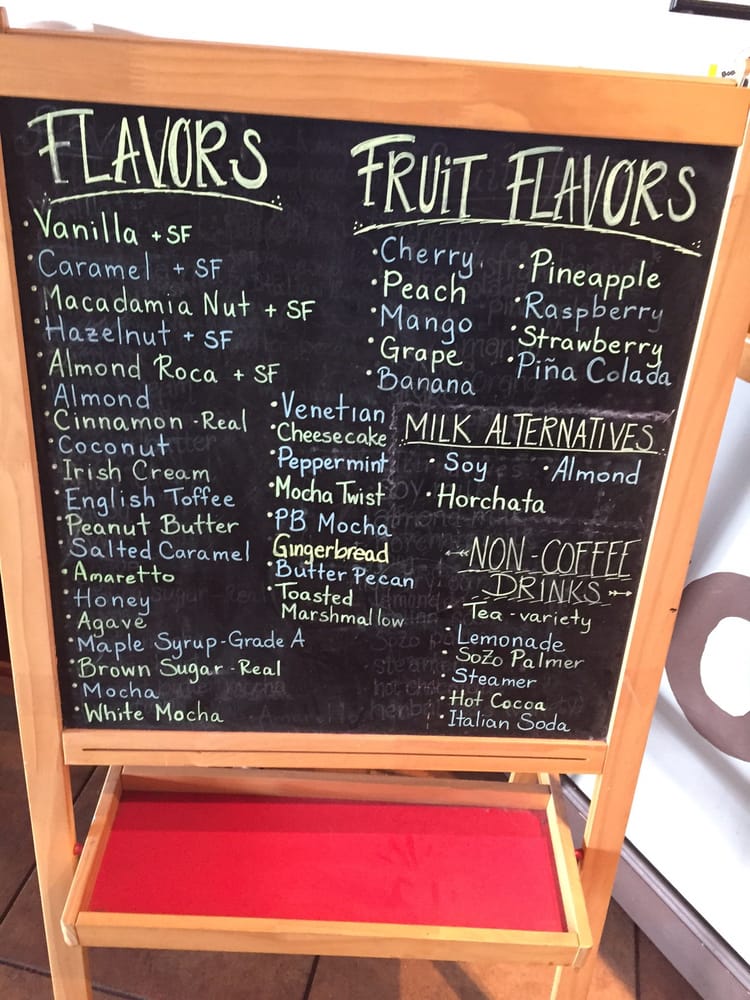 FLAVORS
• Vanilla + SF
• Caramel + SF
• Macadamia Nut + SF
• Hazelnut + SF
• Almond Roca + SF
• Almond
• Cinnamon - Real
• Coconut
• Irish Cream
• English Toffee
• Peanut Butter
• Salted Caramel
• Amaretto
• Honey
• Agave
• Maple Syrup - Grade A
• Brown Sugar - Real
• Mocha
• White Mocha
• Venetian
• Cheesecake
• Peppermint
• Mocha Twist
• PB Mocha
Gingerbread
• Butter Pecan
• Toasted
Marshmallow
FRUIT FLAVORS
• Cherry
• Peach
• Mango
• Grape
• Banana
• Pineapple
• Raspberry
• Strawberry
• Piña Colada
MILK ALTERNATIVES
• Soy • Almond
• Horchata
NON-COFFEE
DRINKS
• Tea - variety
• Lemonade
• SoZo Palmer
• Steamer
• Hot Cocoa
• Italian Soda